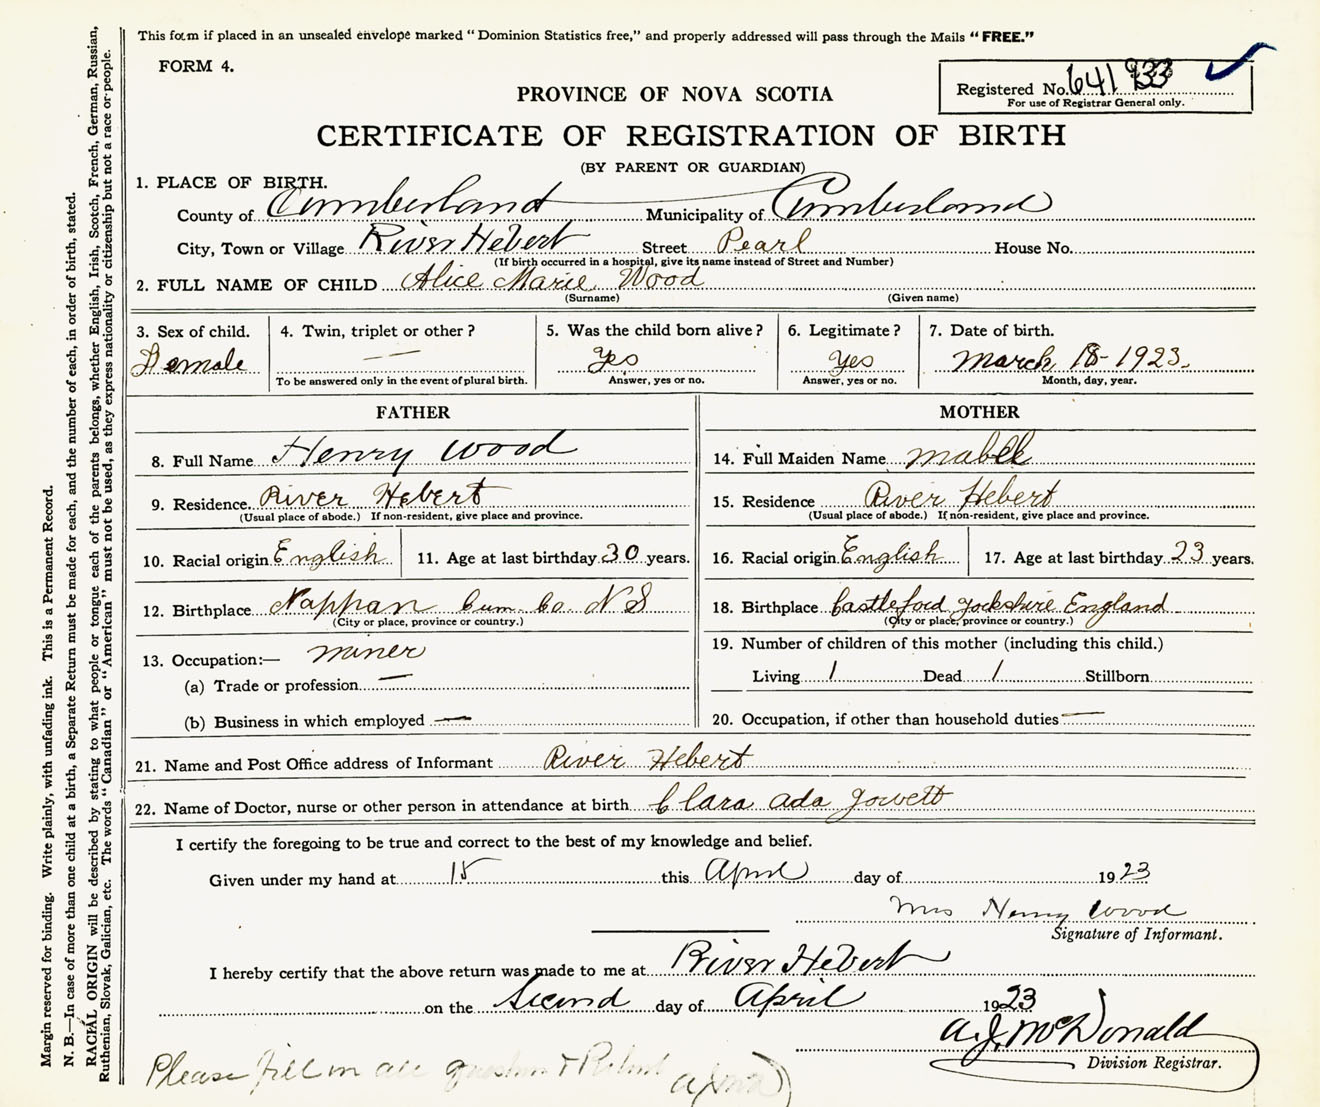 This form if placed in an unsealed envelope marked "Dominion Statistics free," and properly addressed will pass through the Mails "FREE."
FORM 4.
Registered No. 641 933
For use of Registrar General only.
PROVINCE OF NOVA SCOTIA
CERTIFICATE OF REGISTRATION OF BIRTH
(BY PARENT OR GUARDIAN)
1. PLACE OF BIRTH.
County of Cumberland Municipality of Cumberland
City, Town or Village River Hebert Street Pearl House No.
(If birth occurred in a hospital, give its name instead of Street and Number)
2. FULL NAME OF CHILD Alice Marie Wood
(Surname) (Given name)
3. Sex of child. 4. Twin, triplet or other? 5. Was the child born alive? 6. Legitimate? 7. Date of birth.
Female — Yes Yes March 18-1923.
To be answered only in the event of plural birth. Answer, yes or no. Answer, yes or no. Month, day, year.
FATHER MOTHER
8. Full Name Henry Wood 14. Full Maiden Name Mabel
9. Residence. River Hebert 15. Residence River Hebert
(Usual place of abode.) If non-resident, give place and province. (Usual place of abode.) If non-resident, give place and province.
10. Racial origin English 11. Age at last birthday 30 years. 16. Racial origin English 17. Age at last birthday 23 years.
12. Birthplace Nappan Cum. Co. N S 18. Birthplace Castleford Yorkshire England
(City or place, province or country.) (City or place, province or country.)
13. Occupation:— miner 19. Number of children of this mother (including this child.)
(a) Trade or profession — Living 1 Dead 1 Stillborn
(b) Business in which employed — 20. Occupation, if other than household duties —
21. Name and Post Office address of Informant River Hebert
22. Name of Doctor, nurse or other person in attendance at birth Clara Ada Jowett
I certify the foregoing to be true and correct to the best of my knowledge and belief.
Given under my hand at 15 this April day of 1923
Mrs Henry Wood
Signature of Informant.
I hereby certify that the above return was made to me at River Hebert
on the Second day of April 1923
A. J. McDonald
Division Registrar.
Please fill in all question &
Margin reserved for binding. Write plainly, with unfading ink. This is a Permanent Record.
N. B.—In case of more than one child at a birth, a Separate Return must be made for each, and the number of each, in order of birth, stated.
RACIAL ORIGIN will be described by stating to what people or tongue each of the parents belongs, whether English, Irish, Scotch, French, German, Russian,
Ruthenian, Slovak, Galician, etc. The words "Canadian" or "American" must not be used, as they express nationality or citizenship but not a race or people.